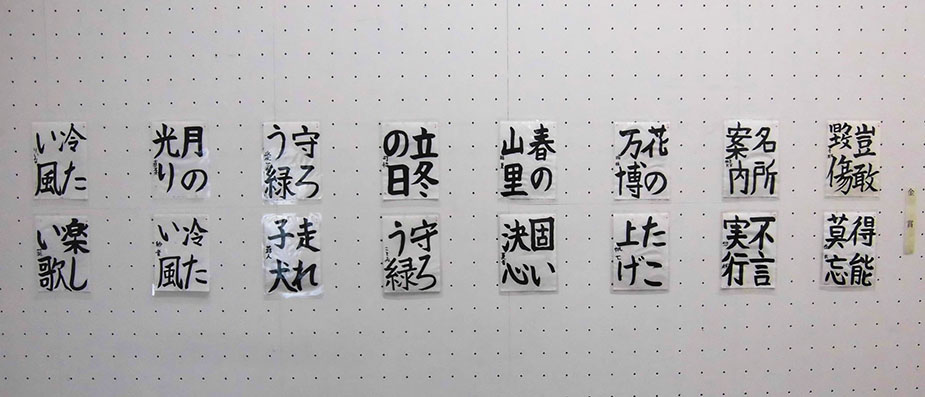 金賞
豈敢
毀傷
得能
莫忘
名所
案内
不言
実行
花の
万博
たこ
上げ
春の
山里
固い
決心
立冬
の日
守ろ
う緑
守ろ
う緑
走れ
子犬
月の
光り
冷た
い風
冷た
い風
楽し
い歌